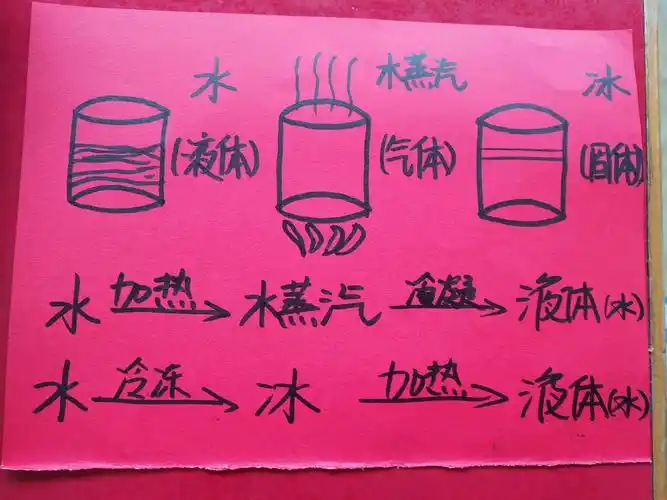 水 水蒸汽 冰
(液体) (气体) (固体)
水 加热 水蒸汽 冷凝 液体(水)
水 冷冻 冰 加热 液体(水)